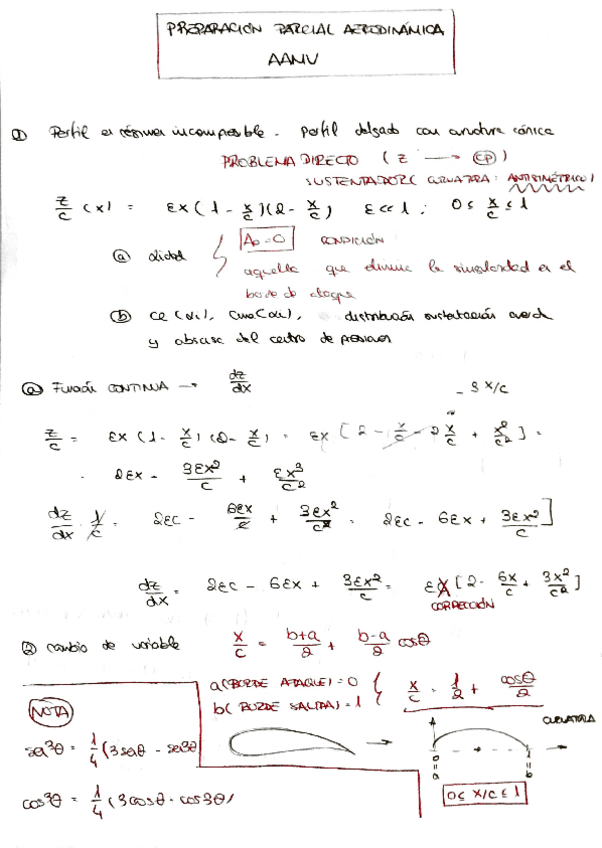 PREPARACIÓN PARCIAL AERODINÁMICA
AANV
① Perfil en régimen incompresible. Perfil delgado con curvatura cónica
PROBLEMA DIRECTO ( z → CP )
SUSTENTADOR ( CURVATURA: ANTISIMÉTRICO )
z/c (x) = εx ( 1 - x/c )(2 - x/c) ε << 1 ; 0 ≤ x/c ≤ 1
A₀ = 0 CONDICIÓN
ⓐ αideal
aquella que elimina la singularidad en el
borde de ataque
ⓑ distribución sustentación
y abscisa del centro de presiones
ⓐ Función CONTINUA → dz/dx
- 3 x/c
z/c = εx (1 - x/c) (2 - x/c) = εx [ 2 - x/c - 2 x/c + x²/c² ] =
= 2εx - 3εx²/c + εx³/c²
dz/dx · 1/c = 2εc - 6εx/c + 3εx²/c² = 2εc - 6εx + 3εx²/c ]
dz/dx = 2εc - 6εx + 3εx²/c = εx [ 2 - 6x/c + 3x²/c² ]
CORRECCIÓN
② cambio de variable x/c = b+a/2 + b-a/2 cosθ
a (BORDE ATAQUE) = 0
b ( BORDE SALIDA) = 1
x/c = 1/2 + cosθ/2
NOTA
CURVATURA
sen³θ = 1/4 (3senθ - sen3θ)
0 = a
1 = b
0 ≤ x/c ≤ 1
cos³θ = 1/4 (3cosθ - cos3θ)